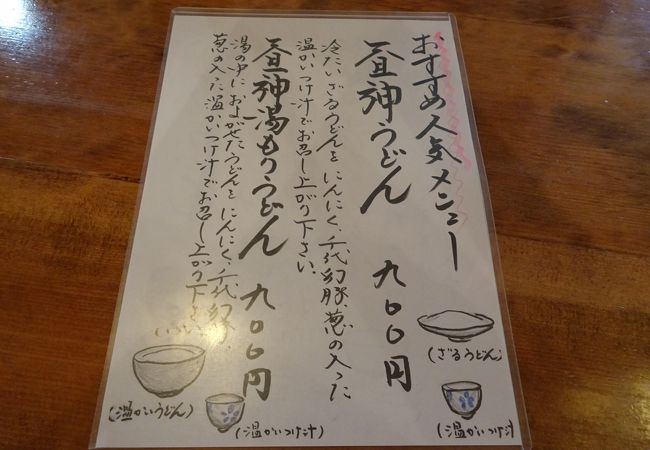 おすすめ人気メニュー
昼神うどん 九〇〇円
冷たいざるうどんを にんにく、千代幻豚、葱の入った
温かいつけ汁でお召し上がり下さい。
昼神湯もりうどん 九〇〇円
湯の中におよがせたうどんを にんにく、千代幻豚、
葱の入った温かいつけ汁でお召し上がり下
(ざるうどん)
(温かいつけ汁
(温かいうどん)
(温かいつけ汁)